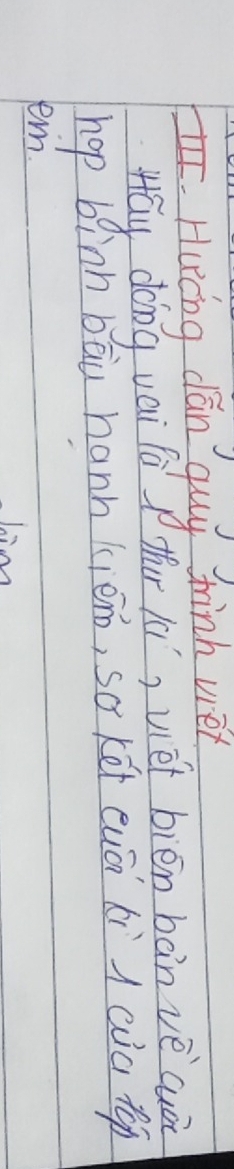 III. Hướng dẫn quy trình viết
Hãy đóng vai là 1 thư kí, viết biên bản về cuộc
họp bình bầu hạnh kiểm, sơ kết cuối kì 1 của lớp
em.